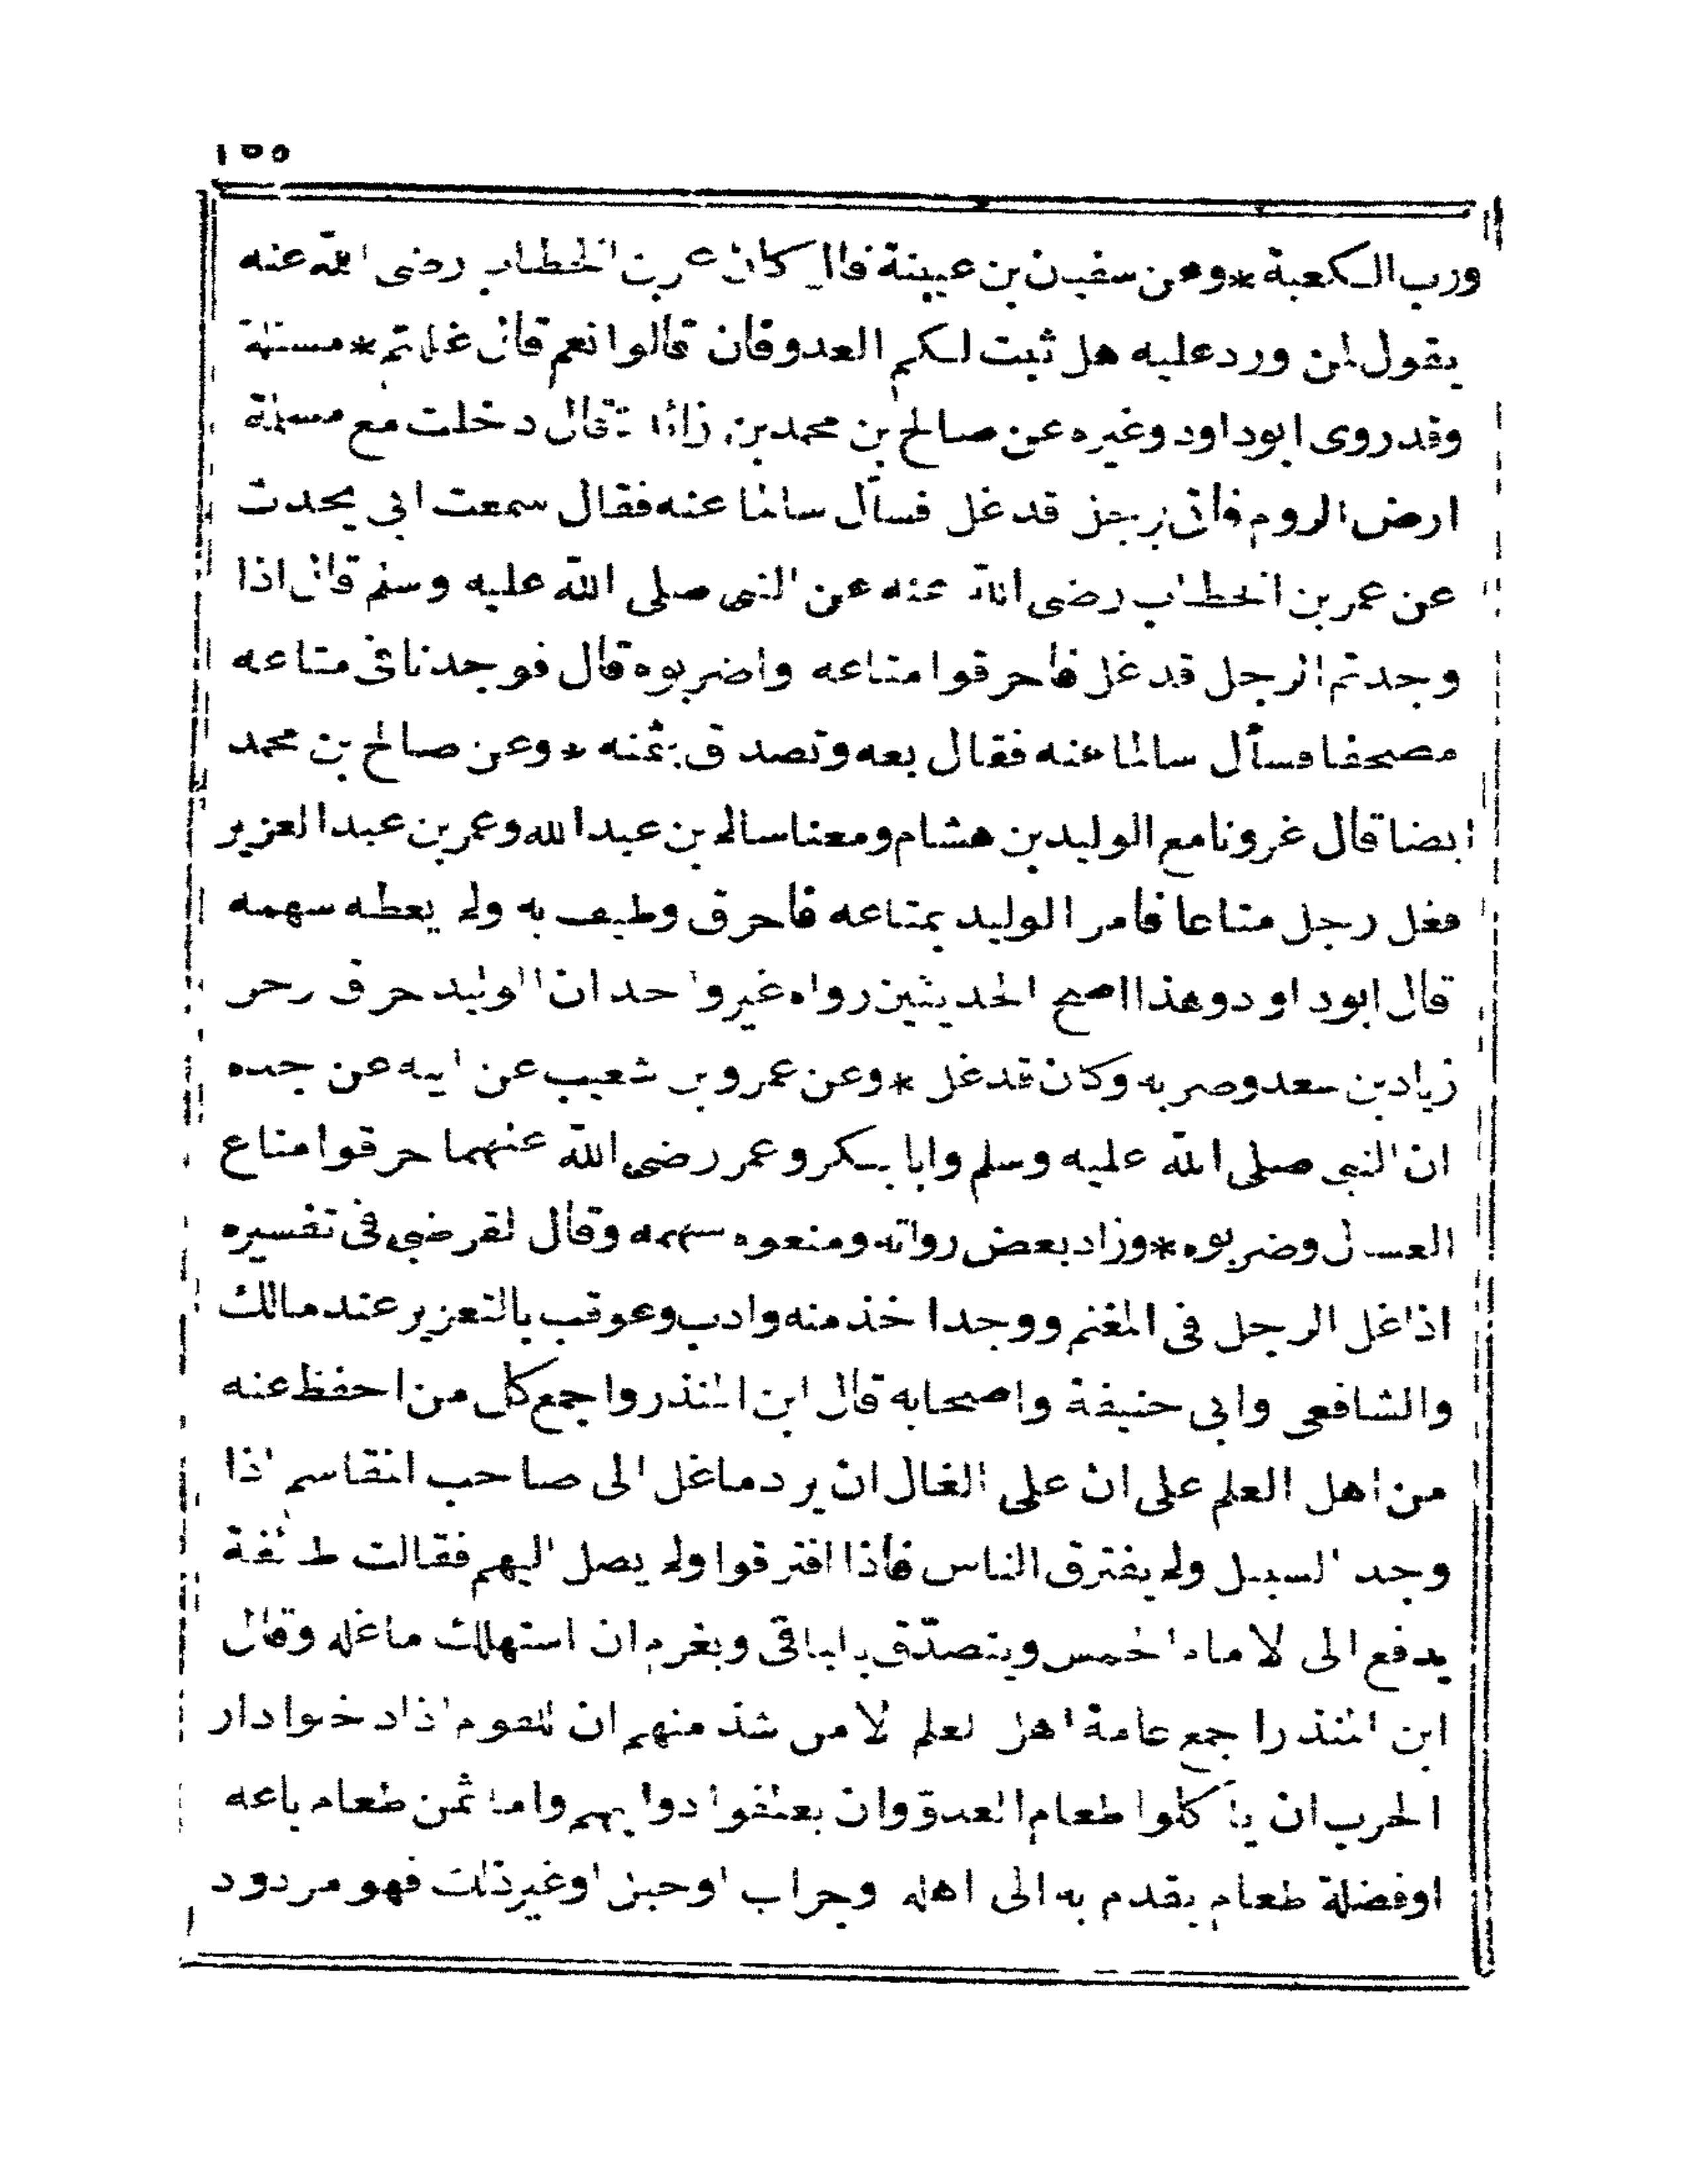 ١٥٥
ورب الكعبة * وعن سفين بن عيينة قال كان عمر بن الخطاب رضى الله عنه
يقول لمن ورد عليه هل ثبت لكم العدو فان قالوا نعم قال غللتم * مسئلة
وقد روى ابو داود وغيره عن صالح بن محمد بن زائدة قال دخلت مع مسلمة
ارض الروم فاتى برجل قد غل فسأل سالما عنه فقال سمعت ابى يحدث
عن عمر بن الخطاب رضى الله عنه عن النبى صلى الله عليه وسلم قال اذا
وجدتم الرجل قد غل فاحرقوا متاعه واضربوه قال فوجدنا فى متاعه
مصحفا فسأل سالما عنه فقال بعه وتصدق بثمنه * وعن صالح بن محمد
ايضا قال غزونا مع الوليد بن هشام ومعنا سالم بن عبد الله وعمر بن عبد العزيز
فغل رجل متاعا فامر الوليد بمتاعه فاحرق وطيف به ولم يعطه سهمه
قال ابو داود وهذا اصح الحديثين رواه غير واحد ان الوليد حرق رحل
زياد بن سعد وضربه وكان قد غل * وعن عمرو بن شعيب عن ابيه عن جده
ان النبى صلى الله عليه وسلم وابا بكر وعمر رضى الله عنهما حرقوا متاع
الغال وضربوه * وزاد بعض رواته ومنعوه سهمه وقال القرطبى فى تفسيره
اذا غل الرجل فى المغنم ووجد اخذ منه وادب وعوقب بالتعزير عند مالك
والشافعى وابى حنيفة واصحابه قال ابن المنذر واجمع كل من احفظ عنه
من اهل العلم على ان على الغال ان يرد ما غل الى صاحب المقاسم اذا
وجد السبيل ولم يفترق الناس فاذا افترقوا ولم يصل اليهم فقالت طائفة
يدفع الى الامام الخمس ويتصدّق بالباقى ويغرم ان استهلك ما غله وقال
ابن المنذر اجمع عامة اهل العلم لا من شذ منهم ان للقوم اذا دخلوا دار
الحرب ان يأكلوا طعام العدوّ وان يعلفوا دوابهم واما ثمن طعام باعه
او فضلة طعام يقدم به الى اهله وجراب او حبل او غير ذلك فهو مردود